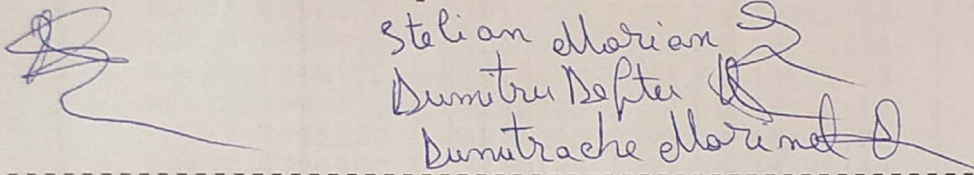 Stelian Marian
Dumitru Defteu
Dumitrache Marinel